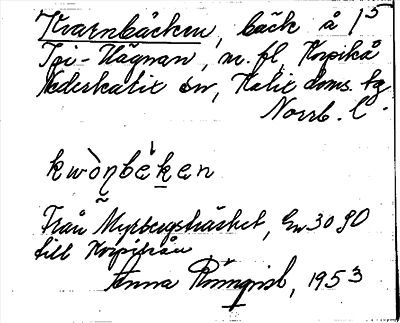 Kvarnbäcken, bäck å 15
Tpi-Vägnan, nr. fl. Korpikå
Nederkalix sn, Kalix doms. tg
Norrb. l.
kwònbèken
Från Myrbergsträsket, En 30 90
till Korpikån
Anna Rönnqvist, 1953